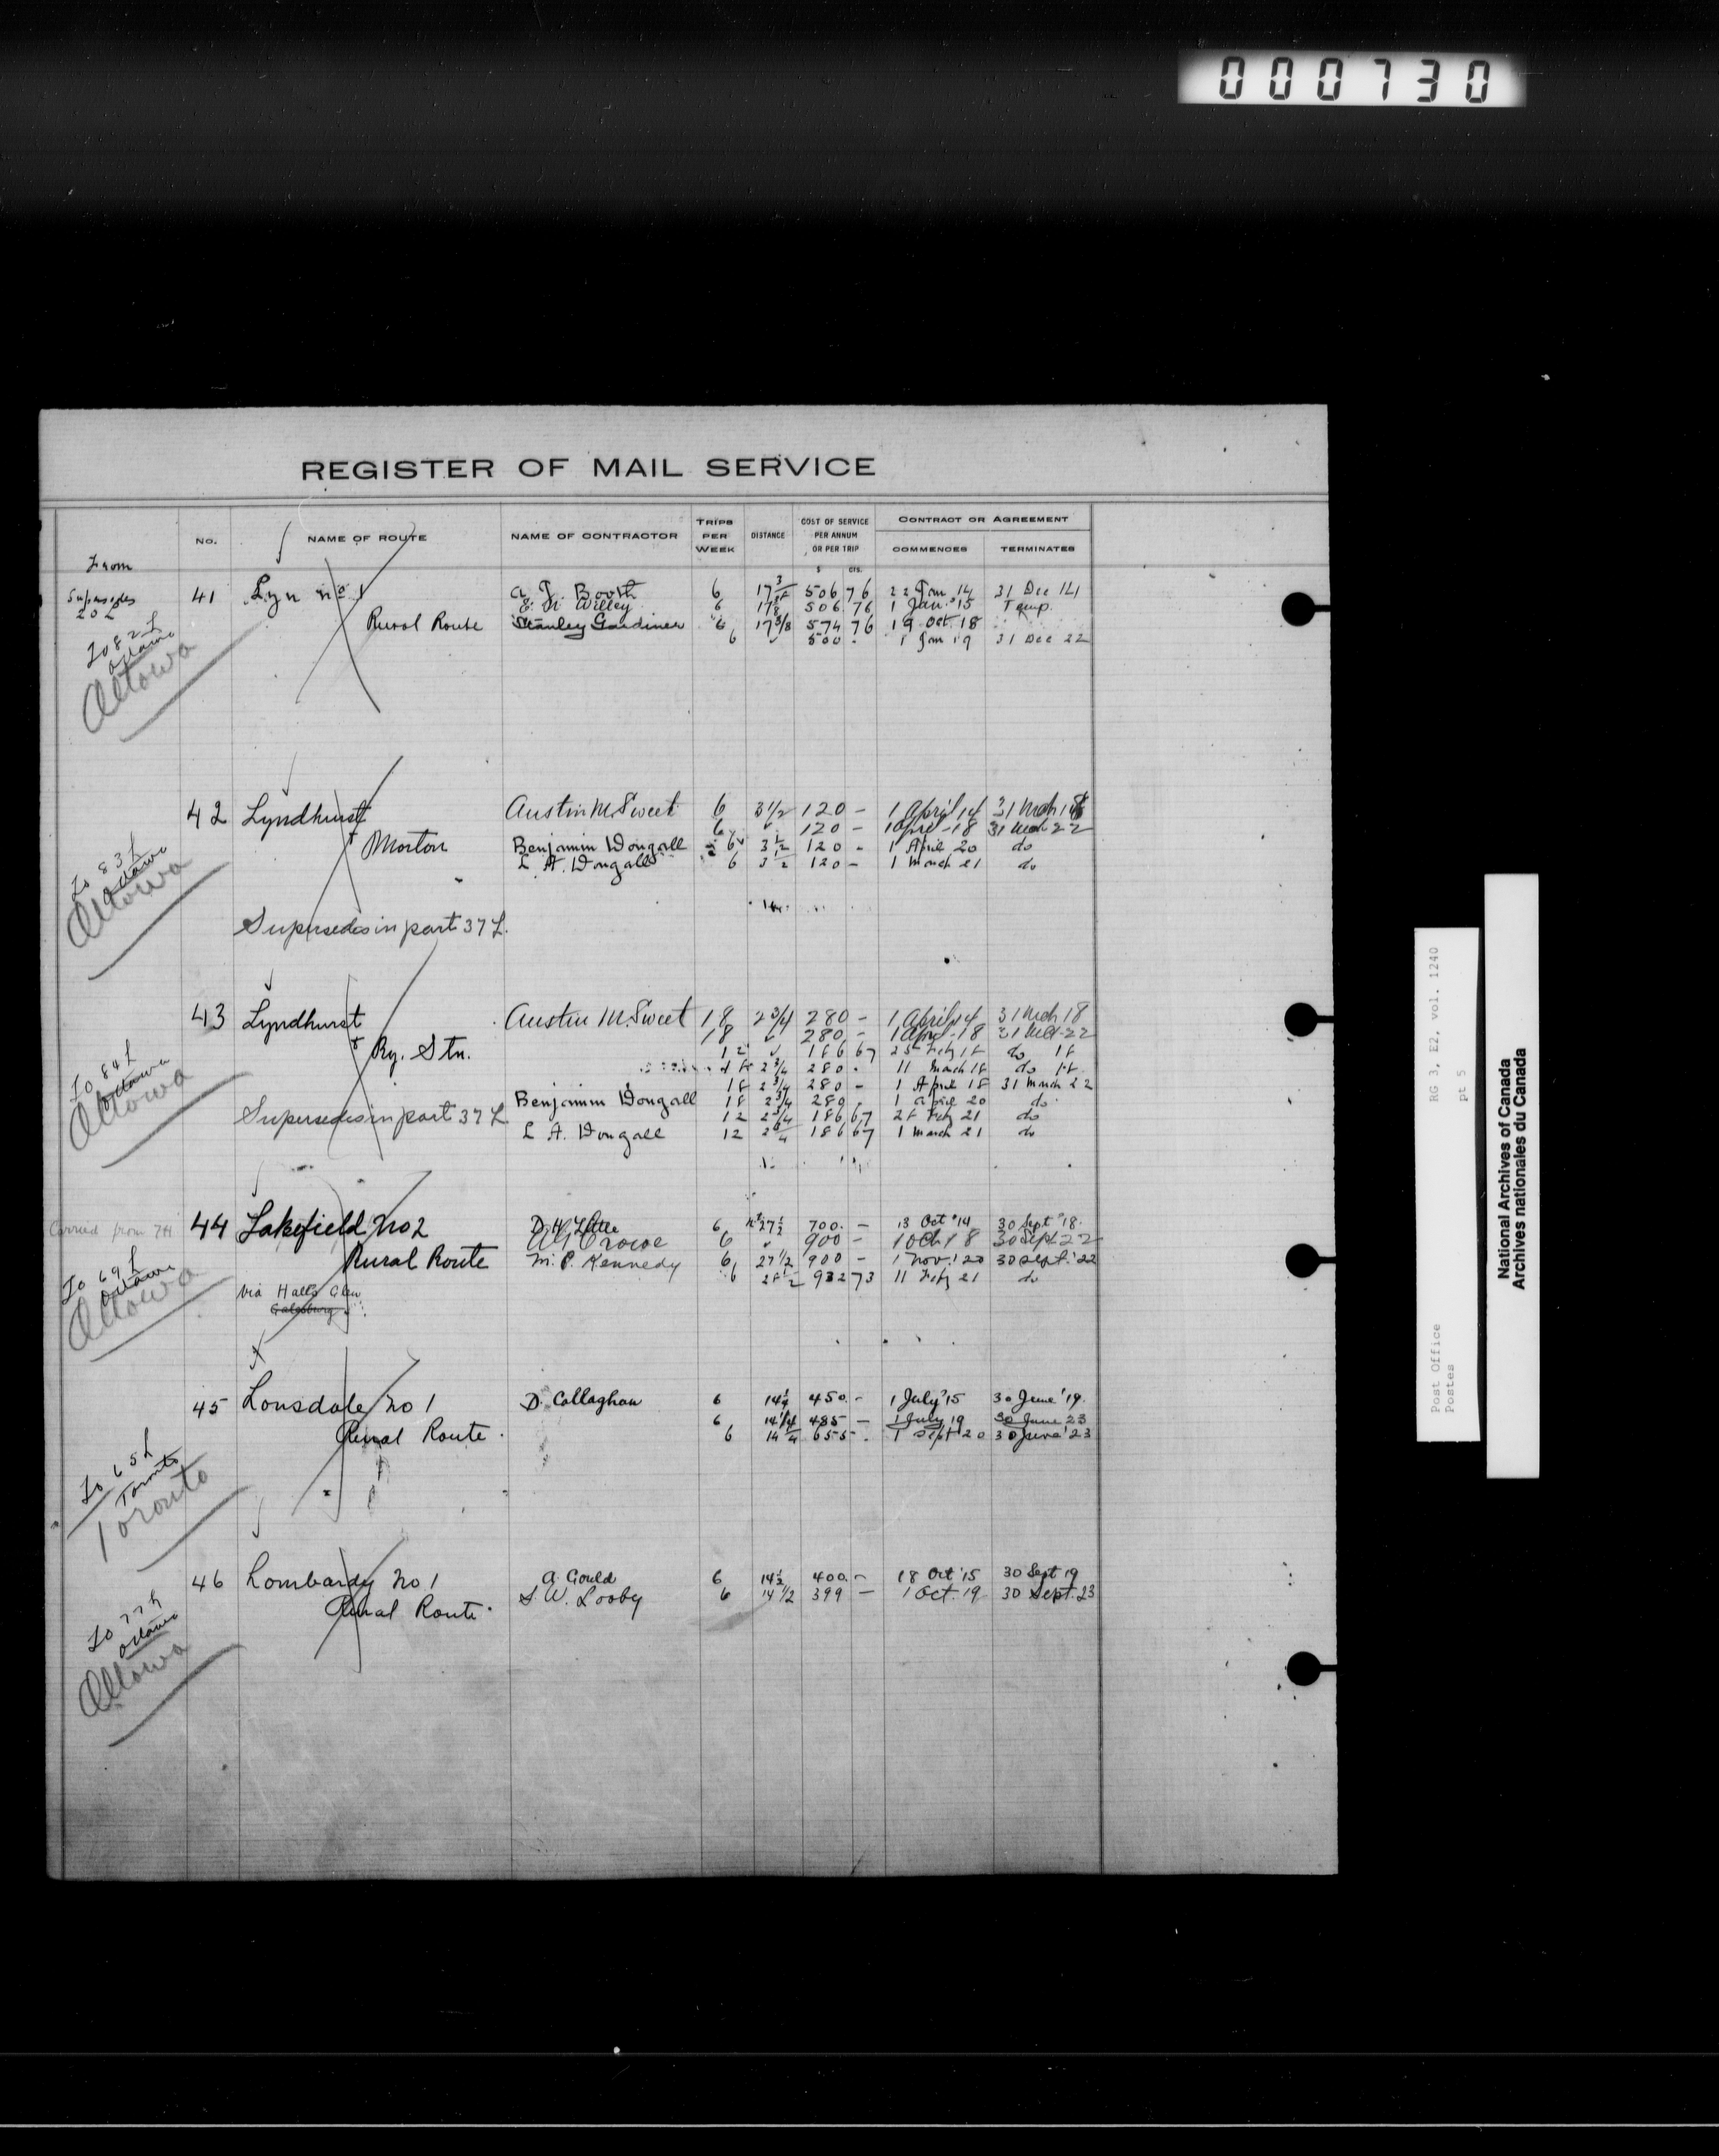 000730
REGISTER OF MAIL SERVICE
No. NAME OF ROUTE NAME OF CONTRACTOR TRIPS PER WEEK DISTANCE COST OF SERVICE PER ANNUM OR PER TRIP CONTRACT OR AGREEMENT
COMMENCES TERMINATES
$ cts.
From
Supersedes 202
41 Lyn No 1 A. J. Booth 6 17 3/8 506 76 22 Jan 14 31 Dec 14
E. N. Willey 6 506 76 1 Jan. '15 Temp.
Rural Route Stanley Gardiner 6 17 3/8 574 76 19 Oct. 18
6 500 1 Jan 19 31 Dec 22
To 82 L
Ottawa
Ottawa
42 Lyndhurst Austin M. Sweet 6 3 1/2 120 - 1 April 14 31 Mch 18
6 120 - 1 April - 18 31 Mch 22
& Morton Benjamin Dougall 6 3 1/2 120 - 1 April 20 do
L. A. Dougall 6 3 1/2 120 - 1 March 21 do
To 83 L
Ottawa
Ottawa
Supersedes in part 37 L.
43 Lyndhurst Austin M. Sweet 18 2 3/4 280 - 1 April 14 31 Mch 18
18 280 - 1 April - 18 31 Mch 22
& Ry. Stn. 12 186 67 25 Feby 18 do 18
18 2 3/4 280 . 11 March 18 do 18
18 2 3/4 280 - 1 April 18 31 March 22
Benjamin Dougall 18 2 3/4 280 . 1 April 20 do
Supersedes in part 37 L 12 2 3/4 186 67 28 Feby 21 do
L A. Dougall 12 2 3/4 186 67 1 March 21 do
To 84 L
Ottawa
Ottawa
Carried from 7H
44 Lakefield No 2 D. H. Little 6 27 1/2 700. - 13 Oct '14 30 Sept '18.
Crowe 6 900 - 1 Oct 18 30 Sept 22
Rural Route M. P. Kennedy 6 27 1/2 900 - 1 Nov. '20 30 Sept. '22
6 28 1/2 932 73 11 Feby 21 do
via Halls Glen
Galesburg
To 69 L
Ottawa
Ottawa
45 Lonsdale No 1 D. Callaghan 6 14 1/4 450. - 1 July '15 30 June '19.
6 14 1/4 485 - 1 July 19 30 June 23
Rural Route . 6 14 1/4 655 . 1 Sept '20 30 June '23
To 65 L
Toronto
Toronto
46 Lombardy No 1 A. Gould 6 14 1/2 400. - 18 Oct '15 30 Sept 19
S. W. Looby 6 14 1/2 399 - 1 Oct. 19 30 Sept. 23
Rural Route.
To 77 L
Ottawa
Ottawa
Post Office RG 3, E2, vol. 1240
Postes pt 5
National Archives of Canada
Archives nationales du Canada